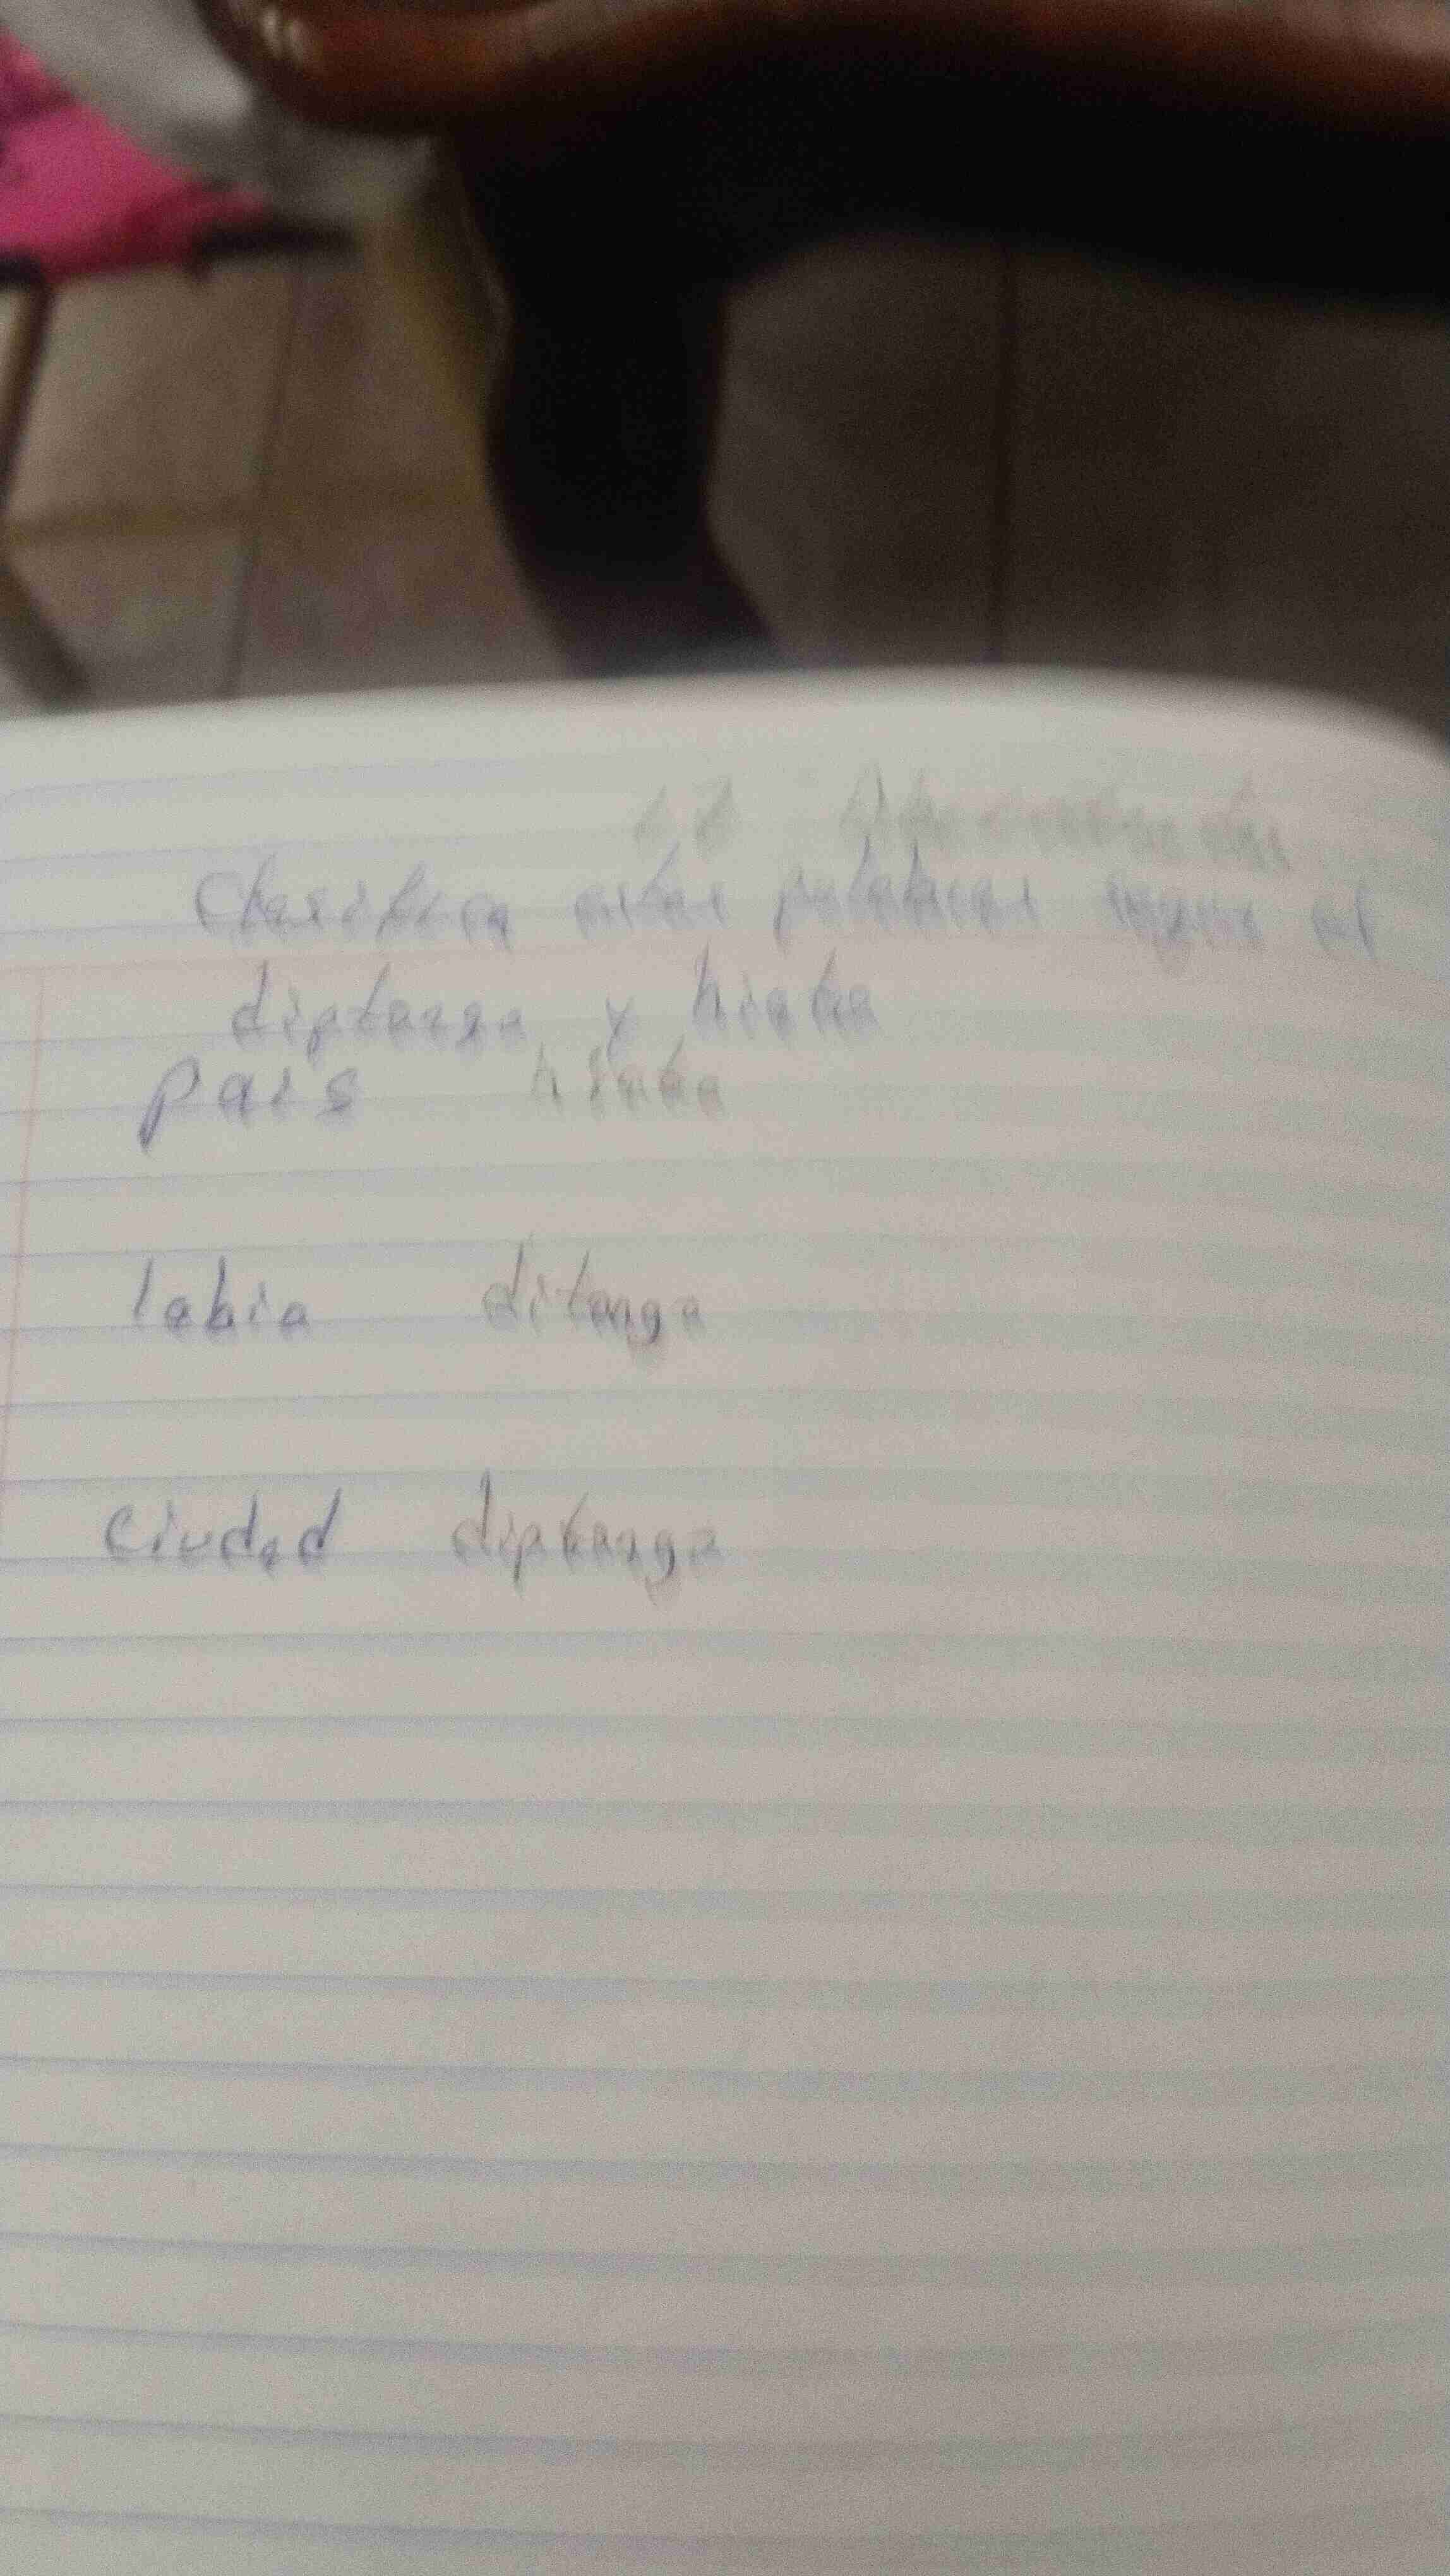 Clasifica estas palabras segun el
diptongo y hiato
pais hiato
labio ditongo
ciudad diptongo